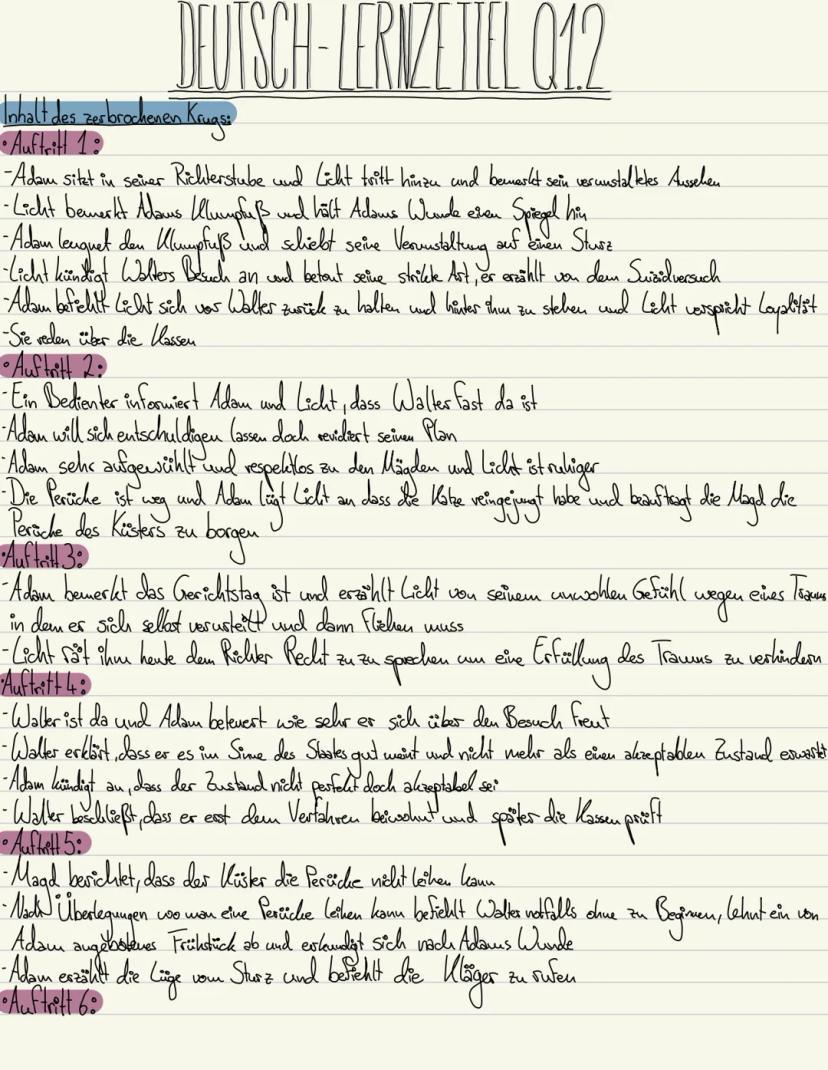 DEUTSCH-LERNZETTEL Q1.2
Inhalt des zerbrochenen Krugs:
• Auftritt 1:
- Adam sitzt in seiner Richterstube und Licht tritt hinzu und bemerkt sein verunstaltetes Aussehen
- Licht bemerkt Adams Klumpfuß und hält Adams Wunde einen Spiegel hin
- Adam leugnet den Klumpfuß und schiebt seine Verunstaltung auf einen Sturz
- Licht kündigt Walters Besuch an und betont seine strikte Art, er erzählt von dem Suizidversuch
- Adam befiehlt Licht sich vor Walter zurück zu halten und hinter ihm zu stehen und Licht verspricht Loyalität
- Sie reden über die Kassen
• Auftritt 2:
- Ein Bedienter informiert Adam und Licht, dass Walter fast da ist
- Adam will sich entschuldigen lassen doch revidiert seinen Plan
- Adam sehr aufgewühlt und respektlos zu den Mägden und Licht ist ruhiger
- Die Perücke ist weg und Adam lügt Licht an dass die Katze reingejungt habe und beauftragt die Magd die
Perücke des Küsters zu borgen
• Auftritt 3:
- Adam bemerkt das Gerichtstag ist und erzählt Licht von seinem unwohlen Gefühl wegen eines Traums
in dem er sich selbst verurteilt und dann fliehen muss
- Licht rät ihm heute dem Richter Recht zu zu sprechen um eine Erfüllung des Traums zu verhindern
• Auftritt 4:
- Walter ist da und Adam beteuert wie sehr er sich über den Besuch freut
- Walter erklärt, dass er es im Sinne des Staates gut meint und nicht mehr als einen akzeptablen Zustand erwartet
- Adam kündigt an, dass der Zustand nicht perfekt doch akzeptabel sei
- Walter beschließt, dass er erst dem Verfahren beiwohnt und später die Kassen prüft
• Auftritt 5:
- Magd berichtet, dass der Küster die Perücke nicht leihen kann
- Nach Überlegungen wo man eine Perücke leihen kann befiehlt Walter notfalls ohne zu Beginnen, lehnt ein von
Adam angebotenes Frühstück ab und erkundigt sich nach Adams Wunde
- Adam erzählt die Lüge vom Sturz und befiehlt die Kläger zu rufen
• Auftritt 6: